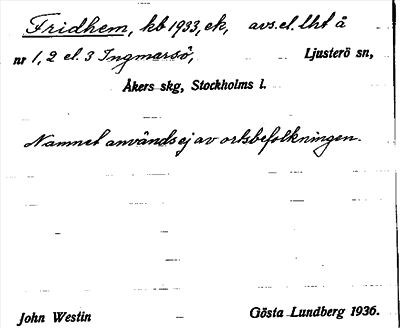 Fridhem, kb 1933, ek, avs. el. lht å
nr 1, 2 el. 3 Ingmarsö, Ljusterö sn,
Åkers skg, Stockholms l.
Namnet används ej av ortsbefolkningen.
John Westin Gösta Lundberg 1936.